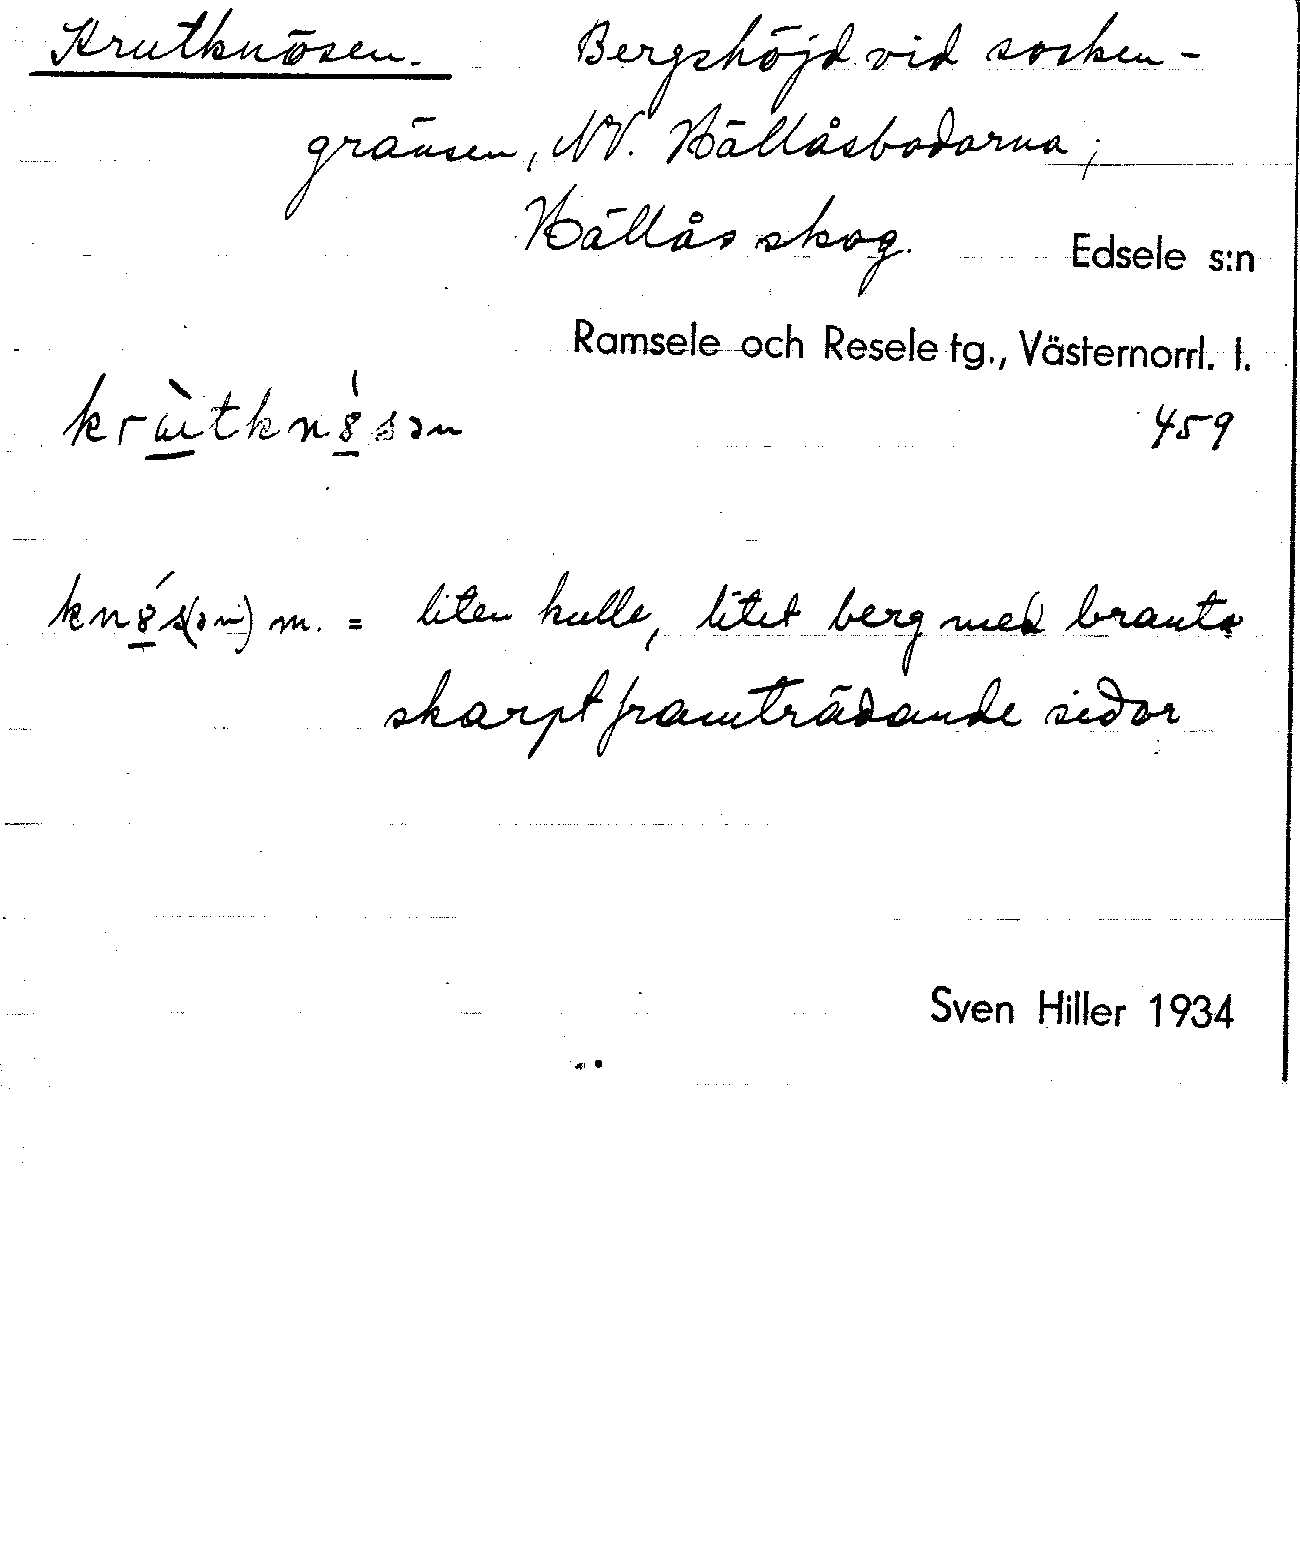 Krutknösen. Bergshöjd vid socken-
gränsen, NV. Hällåsbodarna;
Hällås skog. Edsele s:n
Ramsele och Resele tg., Västernorrl. l.
459
m. = liten kulle, litet berg med branta
skarpt framträdande sidor
Sven Hiller 1934